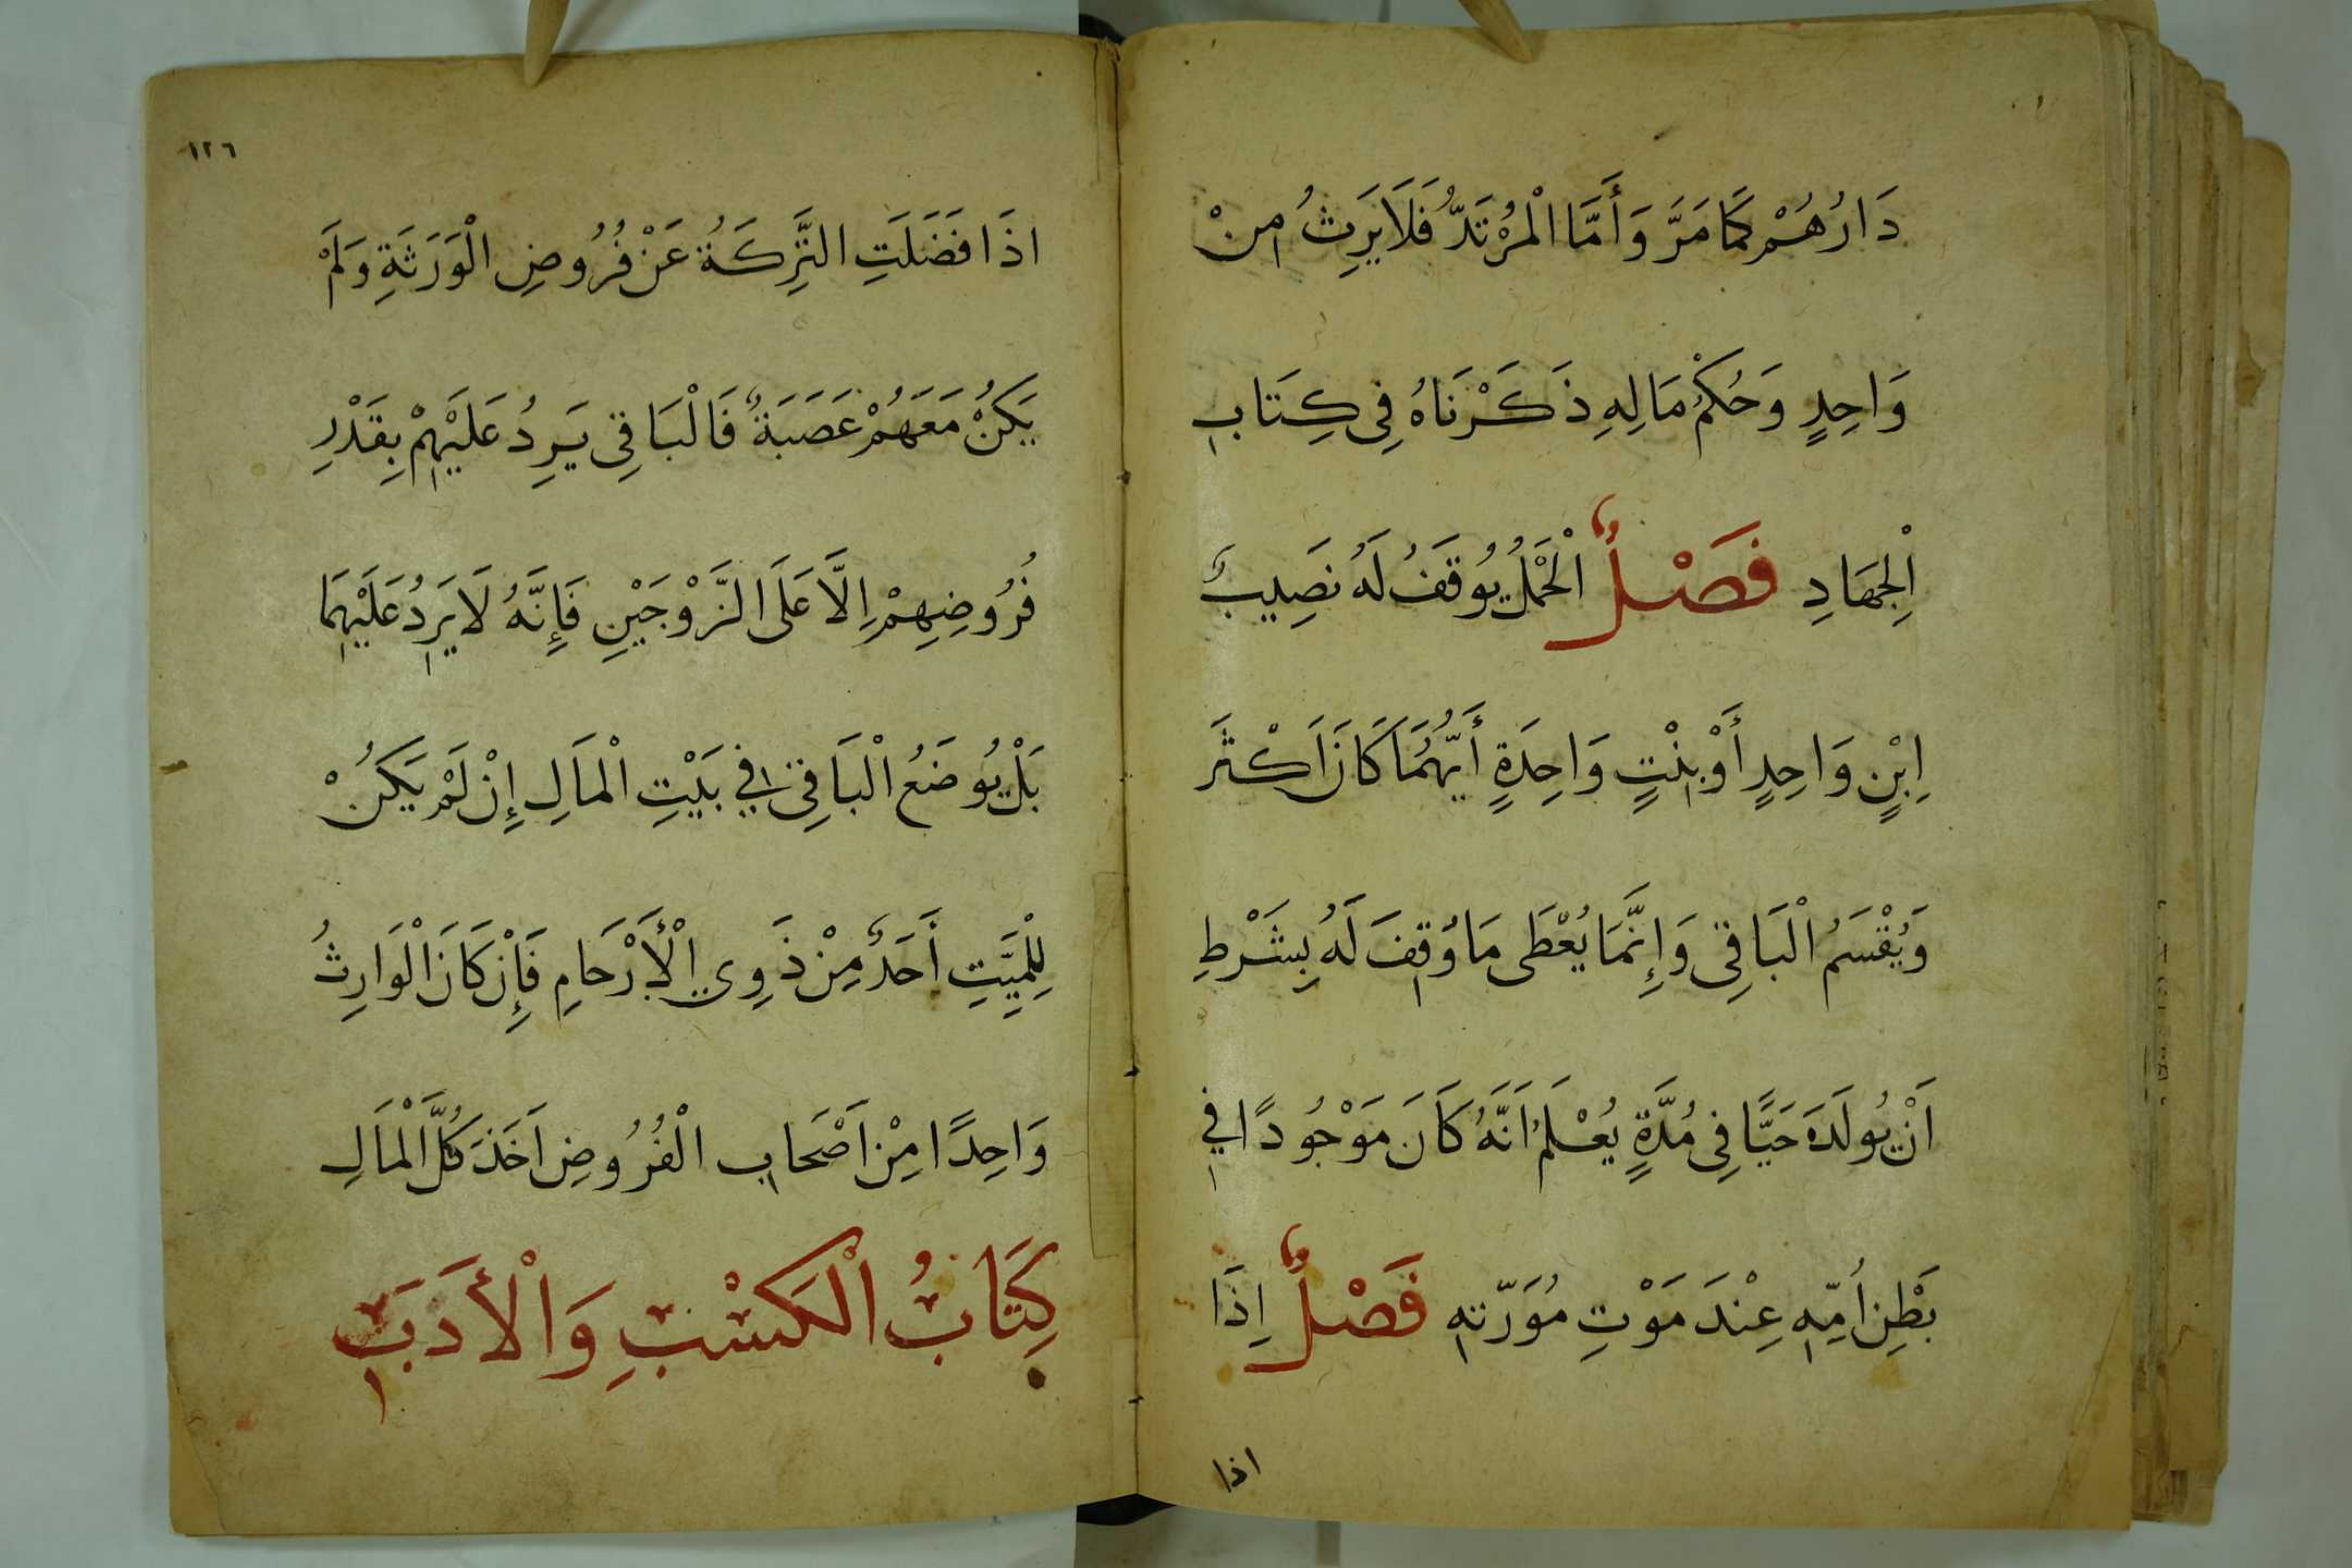 دَارُهُمْ كَمَا مَرَّ وَأَمَّا الْمُرْتَدُّ فَلَا يَرِثُ مِنْ
وَاحِدٍ وَحُكْمُ مَالِهِ ذَكَرْنَاهُ فِى كِتَابِ
اْلِجهَادِ فَصْلٌ الْحَمْلُ يُوقَفُ لَهُ نَصِيبُ
اِبْنٍ وَاحِدٍ أَوْ بِنْتٍ وَاحِدَةٍ أَيُّهُمَا كَانَ اَكْثَرَ
وَيُقْسَمُ الْبَاقِى وَإِنَّمَا يُعْطَى مَا وُقِفَ لَهُ بِشَرْطِ
اَنْ يُولَدَ حَيًّا فِى مُدَّةٍ يُعْلَمُ اَنَّهُ كَانَ مَوْجُودًا فِى
بَطْنِ اُمِّهِ عِنْدَ مَوْتِ مُوَرِّثِهِ فَصْلٌ اِذَا
اذا
١٢٦
اذَا فَضَلَتِ التَّرِكَةُ عَنْ فُرُوضِ الْوَرَثَةِ وَلَمْ
يَكُنْ مَعَهُمْ عَصَبَةٌ فَالْبَاقِى يَرِدُ عَلَيْهِمْ بِقَدْرِ
فُرُوضِهِمْ اِلَّا عَلَى الزَّوْجَيْنِ فَإِنَّهُ لَا يَرِدُ عَلَيْهِمَا
بَلْ يُوضَعُ الْبَاقِى فِى بَيْتِ الْمَالِ إِنْ لَمْ يَكُنْ
لِلْمَيِّتِ أَحَدٌ مِنْ ذَوِى الْأَرْحَامِ فَإِنْ كَانَ الْوَارِثُ
وَاحِدًا مِنْ اَصْحَابِ الْفُرُوضِ اَخَذَ كُلَّ الْمَالِ
كِتَابُ الْكَسْبِ وَالْأَدَبِ